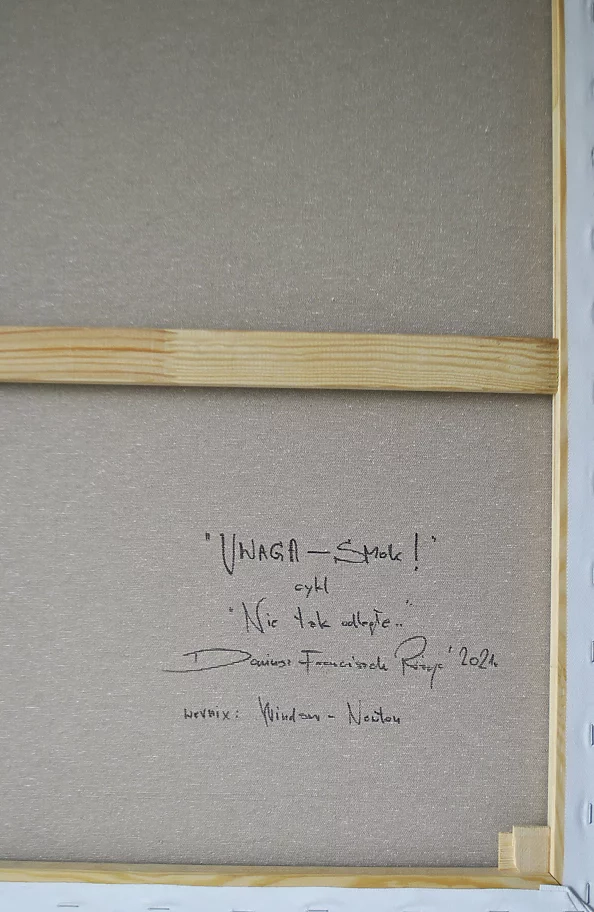 "UWAGA – Smok!"
cykl
"Nie tak odległe.."
Dariusz Franciszek '2021
wernix: Windsor - Newton